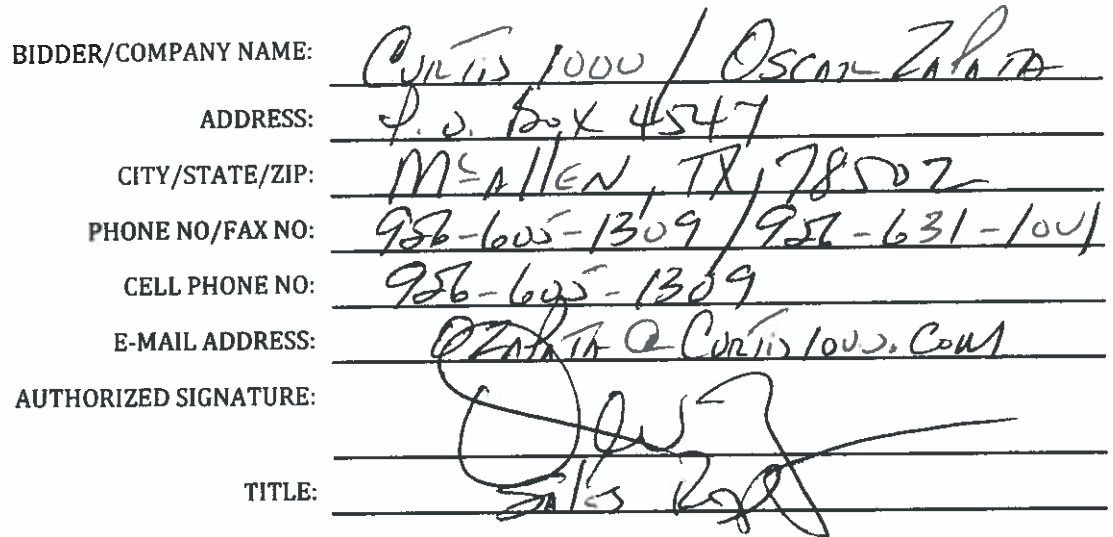 BIDDER/COMPANY NAME: Curtis 1000 / Oscar Zapata
ADDRESS: P.O. Box 4547
CITY/STATE/ZIP: McAllen, TX, 78502
PHONE NO/FAX NO: 956-605-1309 / 956-631-1001
CELL PHONE NO: 956-605-1309
E-MAIL ADDRESS: OZapata@Curtis1000.Com
AUTHORIZED SIGNATURE:
TITLE: Sales Rep